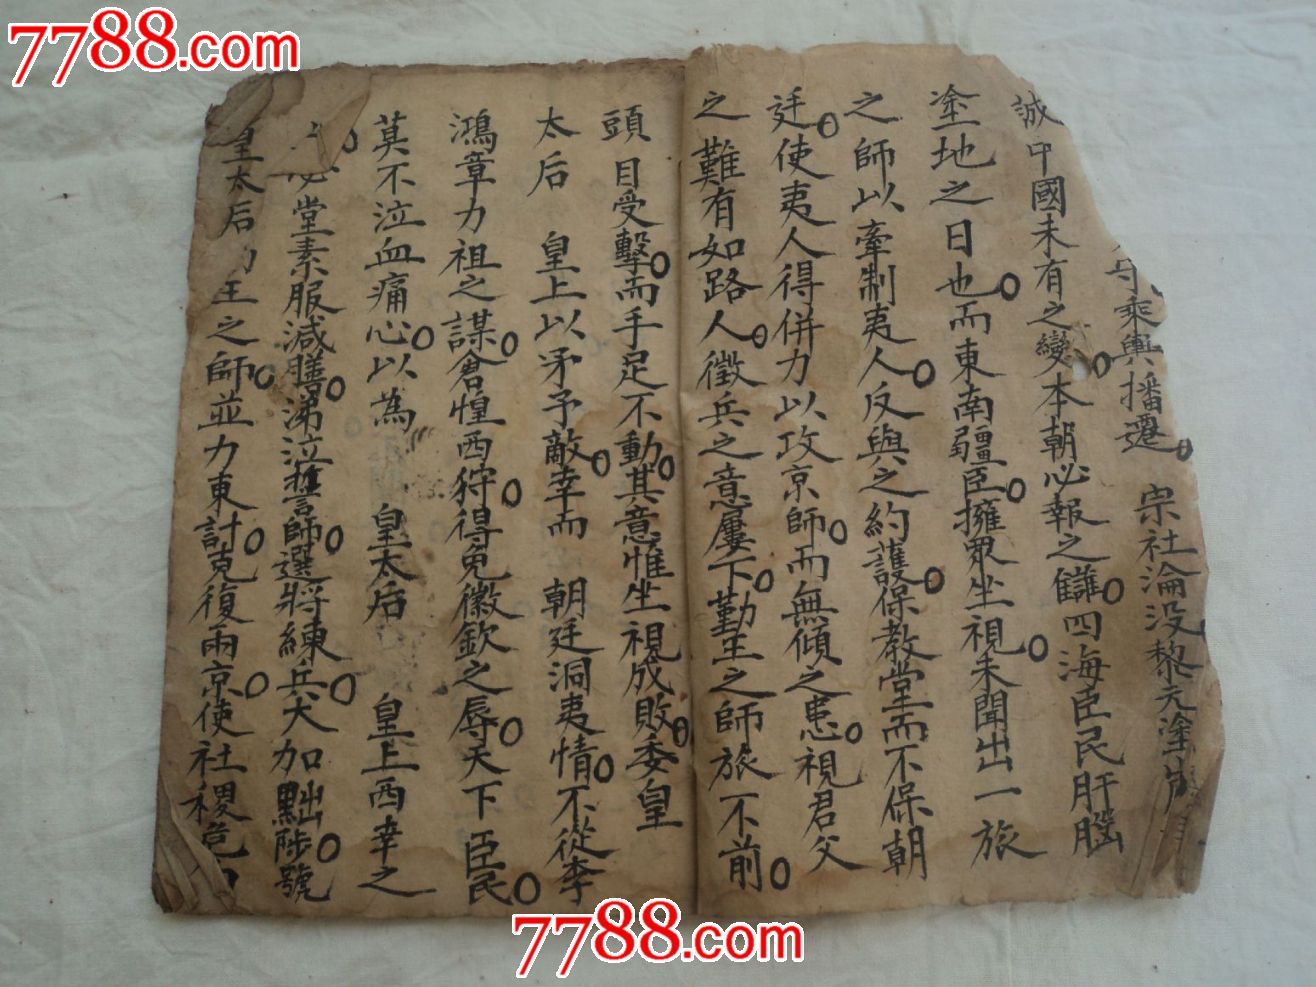 7788.com
守乘輿播遷。 宗社淪没黎元塗
誠中國未有之變。本朝必報之讎。四海臣民肝腦
塗地之日也。而東南疆臣。擁眾坐視。未聞出一旅
之師以牽制夷人。反與之約。護保教堂而不保朝
廷。使夷人得併力以攻京師。而無傾之患。視君父
之難有如路人。徵兵之意屢下。勤王之師旅不前。
頭目受擊。而手足不動。其意惟坐視成敗。委皇
太后 皇上以矛予敵。幸而 朝廷洞夷情。不從李
鴻章力祖之謀。倉惶西狩。得免徽欽之辱。天下臣民。
莫不泣血痛心。以為 皇太后 皇上西幸之
必堂素服減膳。涕泣誓師。選將練兵。大加黜陟。號
皇太后 王之師。並力東討。克復兩京。使社稷
7788.com